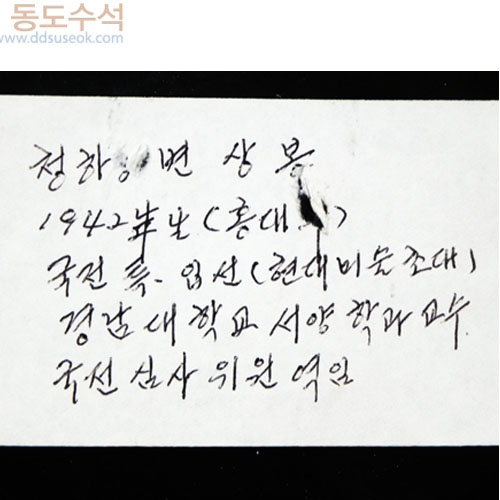 동도수석
www.ddsuseok.com
청하 변상봉
1942年生(홍대)
국전 특.입선(현대미술초대)
경남대학교 서양학과 교수
국선 심사위원 역임